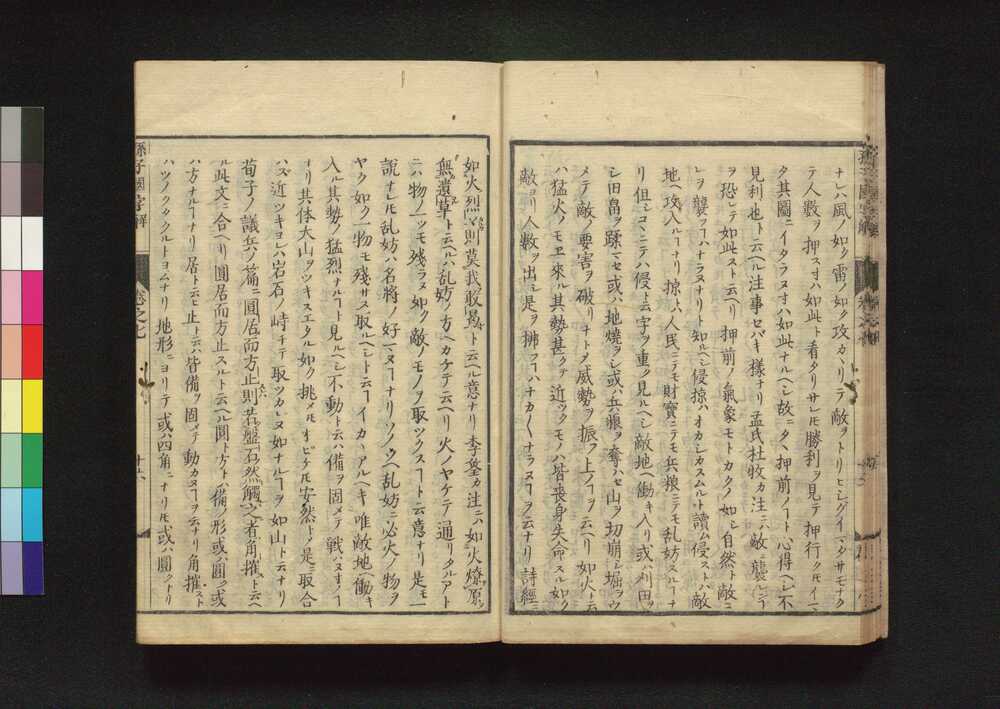 ナレハ風ノ如ク雷ノ如ク攻カヽリテ敵ヲトリヒシグイマタサモナク
テ人數ヲ押スヿハ如此ト看タリサレ𪜈勝利ヲ見テ押行ク𪜈イマ
タ其圖ニイタラヌヿハ如此ナルヘシ故ニタヽ押前ノヿト心得ヘシ不
見利也ト云ヘル注事セバキ樣ナリ孟氏杜牧カ注ニハ敵ノ襲ンヿ
ヲ恐レテ如此スト云ヘリ押前ノ氣象モトカクノ如シ自然ト敵ニ
レヲ襲フヿハナラヌナリト知ルヘシ侵掠ハオカシカスムルト讀ム侵ストハ敵
地ヘ攻入ルヿナリ掠ハ人民ニテモ財寶ニテモ兵粮ニテモ乱妨スルヿナ
リ但シコヽニテハ侵ト云字ヲ重ク見ルヘシ敵地ヘ働キ入リ或ハ刈田ヲ
シ田畠ヲ蹂マセ或ハ地燒ヲシ或ハ兵粮ヲ奪ハセ山ヲ切崩シ堀ヲウ
メテ敵ノ要害ヲ破リチトメ威勢ヲ振フ上ノヿヲ云ヘリ如火ト云
ハ猛火ノモヱ來ル其勢甚タ近ツクモノハ皆喪身失命スル如ク
敵ヨリ人數ヲ出シ是ヲ拂フヿハナカ〱ナラヌヿヲ云ナリ詩經ニ
如火烈烈則莫我敢曷ト云ヘル意ナリ李筌カ注ニハ如火燎原
無遺草ト云ヘルハ乱妨ノ方ヘカケテ云ヘリ火ノヤケテ通リタルアト
ニハ物ノ一ツモ殘ラヌ如ク敵ノモノヲ取ツクスヿト云意ナリ是モ一
説ナレ𪜈乱妨ハ名將ノ好マヌヿナリソノウヘ乱妨ニ必火ノ物ヲ
ヤク如ク一物モ殘サス取ルヘシト云ヿイカヽアルヘキ唯敵地ヘ働キ
入ル其勢ノ猛烈ナルヿト見ルヘシ不動ト云ハ備ヲ固メテ戰ハヌ寸ノヿ
ナリ其体大山ノツキスエタル如ク挑メ𪜈オビケ𪜈安然トノ是ニ取合
ハズ近ツキヨレハ岩石ノ峙チテ取ツカレヌ如ナルヿヲ如山ト云ナリ
荀子ノ議兵ノ篇ニ圓居而方止則若盤石然觸之者角摧ト云ヘ
ル此文ニ合ヘリ圓居而方止スルト云ヘル圓ト方トハ備ノ形或ハ圓ク或
ハ方ナルヿナリ居ト云ヒ止ト云ハ皆備ヲ固メテ動カヌヿヲ云ナリ角摧スト
ハツノクタクルトヨムナリ地形ニヨリテ或ハ四角ニナリ𪜈或ハ圓クナリ
孫子國字解
卷之七
十六